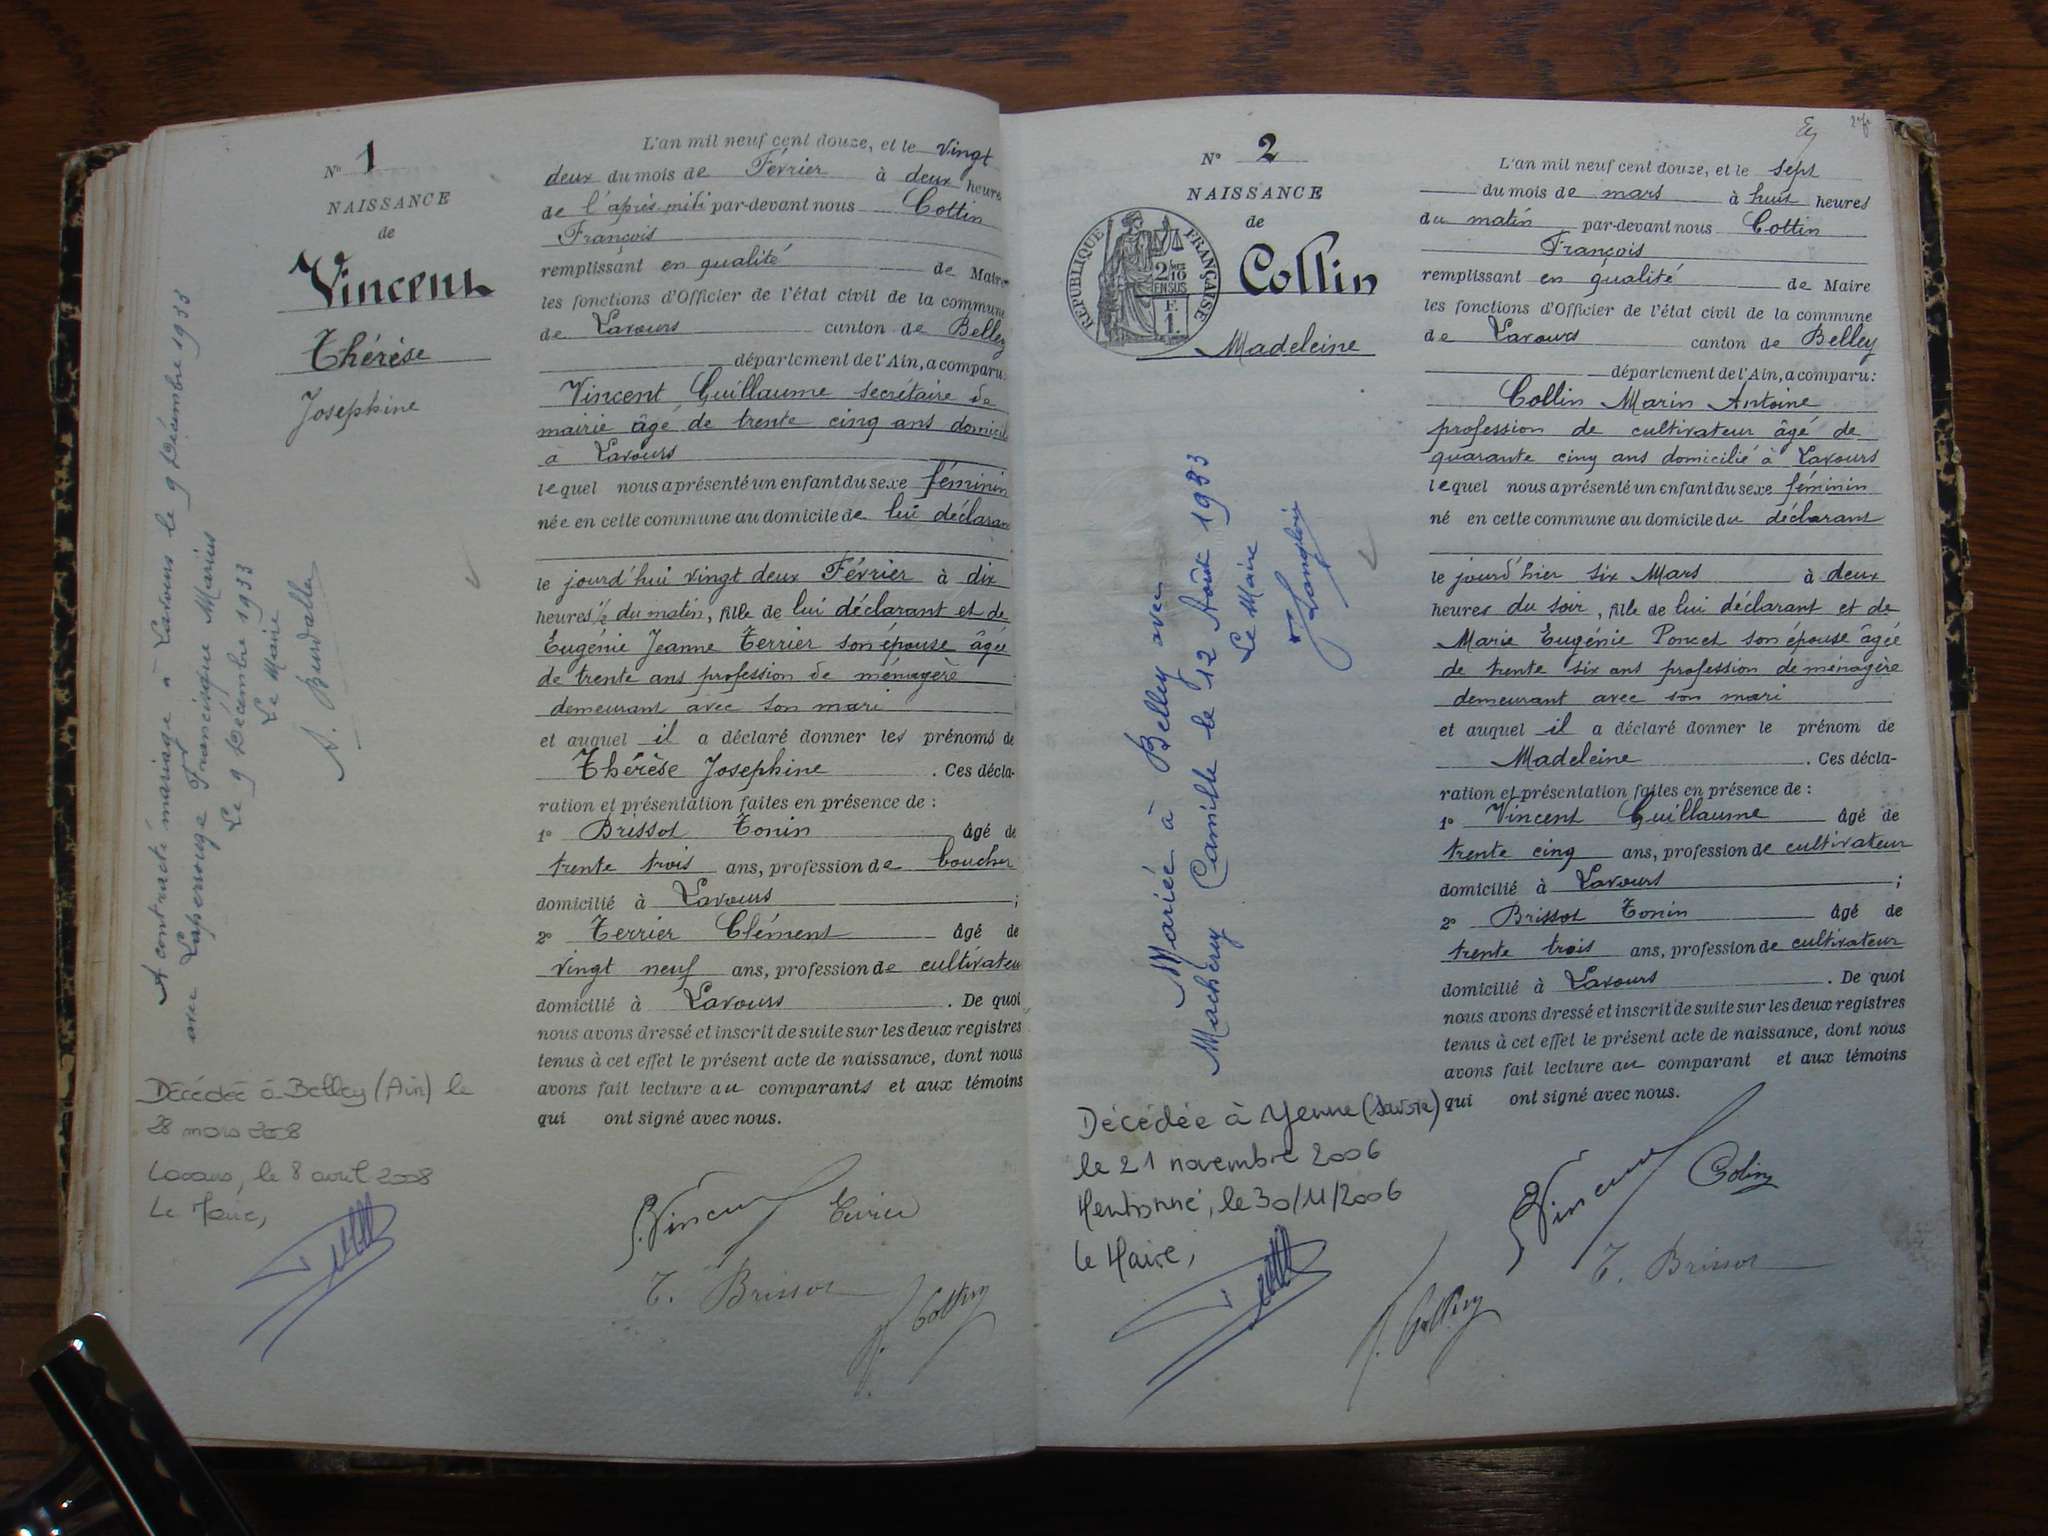 N° 1
NAISSANCE
de
Vincent
Thérèse
Josephine
A contracté mariage à Lavours le 9 Décembre 1933
avec Laperrouze Francisque Marius
Le 9 Décembre 1933
Le Maire
Décédée à Belley (Ain) le
28 mars 2008
Lavours, le 8 avril 2008
Le Maire,
L'an mil neuf cent douze, et le vingt
deux du mois de Février à deux heures
de l'après midi par-devant nous Cottin
François
remplissant en qualité de Maire
les fonctions d'Officier de l'état civil de la commune
de Lavours canton de Belley
département de l'Ain, a comparu:
Vincent Guillaume secrétaire de
mairie âgé de trente cinq ans domicil
à Lavours
lequel nous a présenté un enfant du sexe féminin
née en cette commune au domicile de lui déclarant
le jourd'hui vingt deux Février à dix
heures ½ du matin, fille de lui déclarant et de
Eugénie Jeanne Terrier son épouse âgée
de trente ans profession de ménagère
demeurant avec son mari
et auquel il a déclaré donner les prénoms de
Thérèse Josephine . Ces décla-
ration et présentation faites en présence de :
1° Brissot Tonin âgé de
trente trois ans, profession de boucher
domicilié à Lavours ;
2° Terrier Clément âgé de
vingt neuf ans, profession de cultivateu
domicilié à Lavours . De quoi
nous avons dressé et inscrit de suite sur les deux registres
tenus à cet effet le présent acte de naissance, dont nous
avons fait lecture au comparants et aux témoins
qui ont signé avec nous.
G. Vincent Terrier
T. Brissot
F. Cottin
N° 2
NAISSANCE
de
Collin
Madeleine
RÉPUBLIQUE FRANÇAISE
2/10
EN SUS
F.
1.
Mariée à Belley avec
Machery Camille le 12 Août 1933
Le Maire
Décédée à Yenne (Savoie)
le 21 novembre 2006
Mentionné, le 30/11/2006
le Maire,
L'an mil neuf cent douze, et le sept
du mois de mars à huit heures
du matin par-devant nous Cottin
François
remplissant en qualité de Maire
les fonctions d'Officier de l'état civil de la commune
de Lavours canton de Belley
département de l'Ain, a comparu:
Collin Marin Antoine
profession de cultivateur âgé de
quarante cinq ans domicilié à Lavours
lequel nous a présenté un enfant du sexe féminin
né en cette commune au domicile du déclarant
le jourd'hier six Mars à deux
heures du soir, fille de lui déclarant et de
Marie Eugénie Poncet son épouse âgée
de trente six ans profession de ménagère
demeurant avec son mari
et auquel il a déclaré donner le prénom de
Madeleine . Ces décla-
ration et présentation faites en présence de :
1° Vincent Guillaume âgé de
trente cinq ans, profession de cultivateur
domicilié à Lavours ;
2° Brissot Tonin âgé de
trente trois ans, profession de cultivateur
domicilié à Lavours . De quoi
nous avons dressé et inscrit de suite sur les deux registres
tenus à cet effet le présent acte de naissance, dont nous
avons fait lecture au comparant et aux témoins
qui ont signé avec nous.
G. Vincent Colin
T. Brissot
F. Cottin